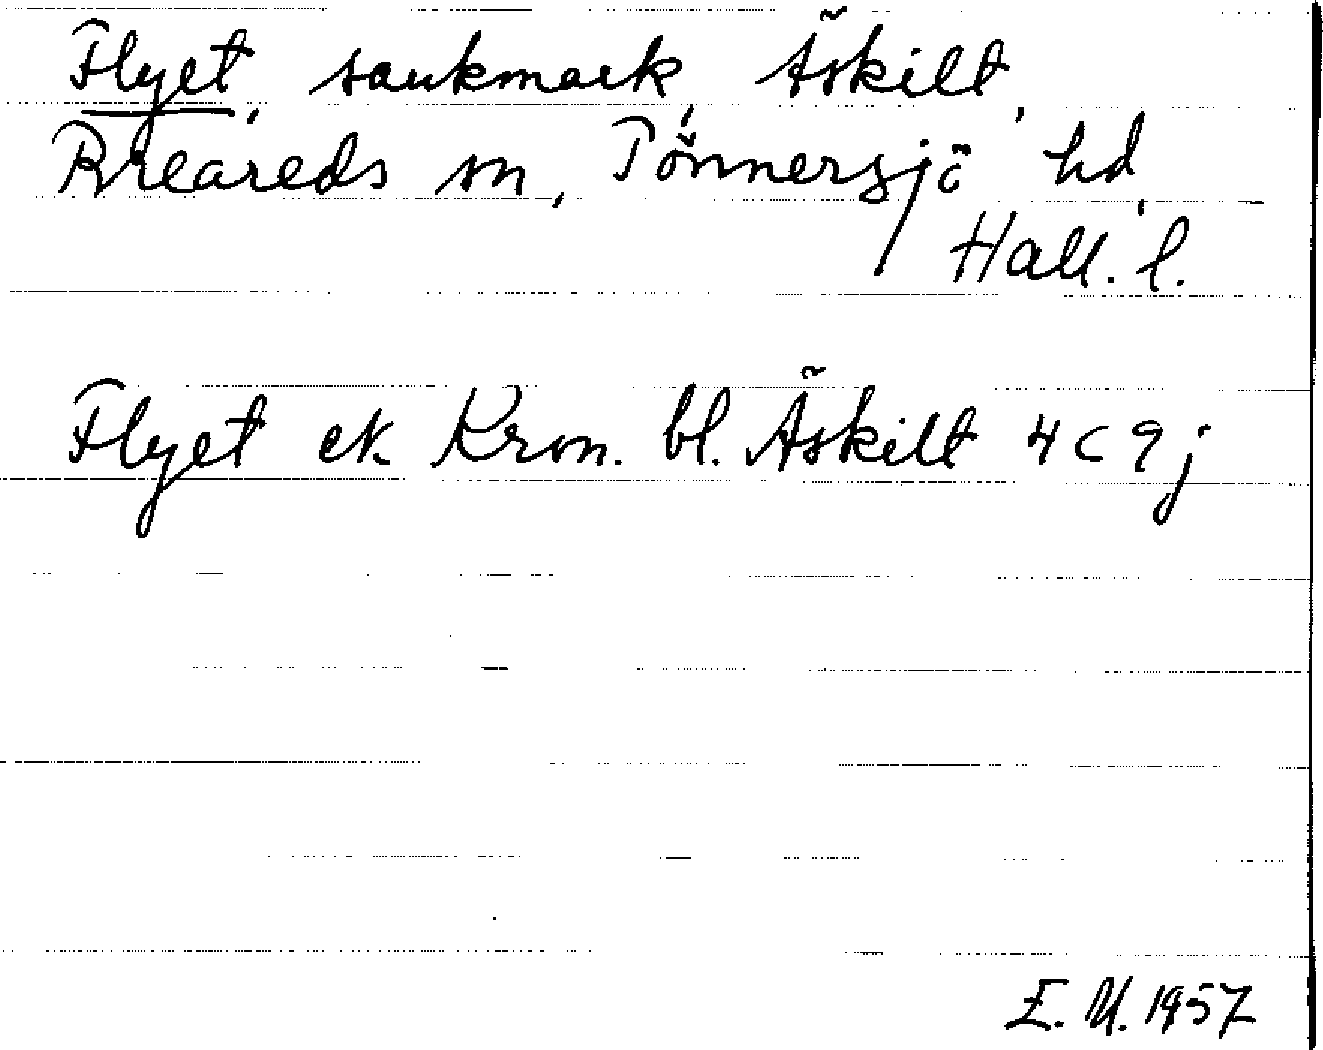 Flyet, sankmark, Äskilt,
Breareds sn, Tönnersjö hd,
Hall. l.
Flyet ek. Kron. bl. Äskilt 4 C 9 j
E. U. 1957